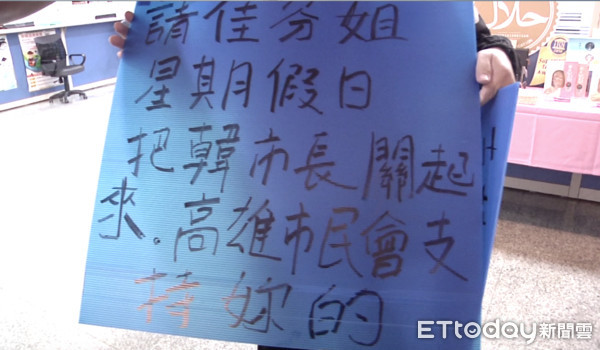 請佳芬姐
星期假日
把韓市長關起
來.高雄市民會支
持妳的
ETtoday新聞雲